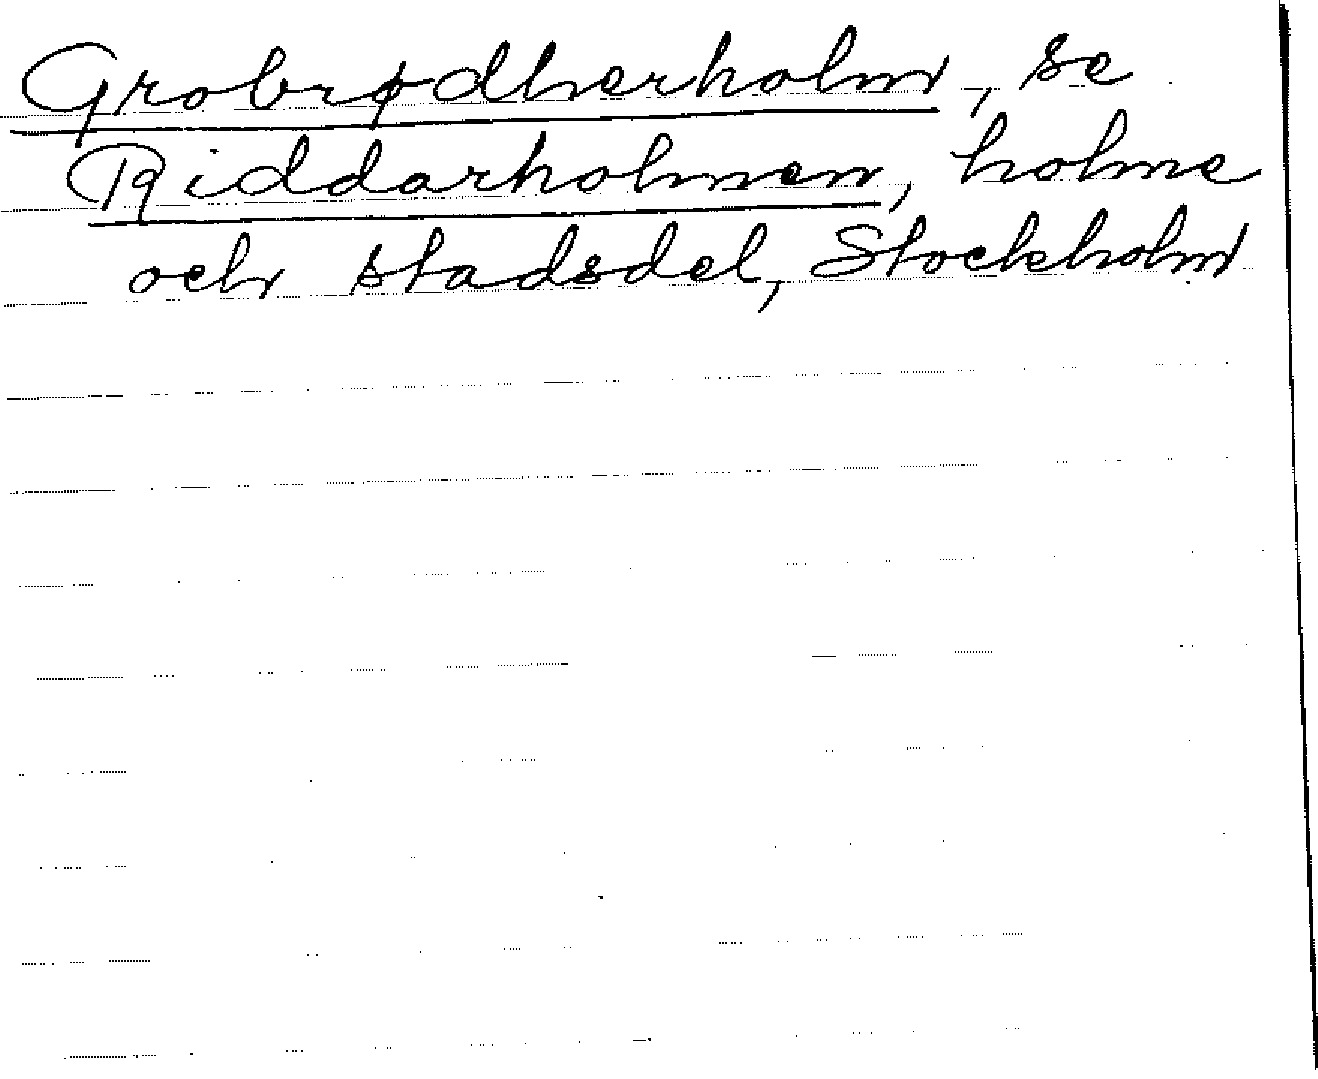 Grobrødherholm, se
Riddarholmen, holme
och stadsdel, Stockholm